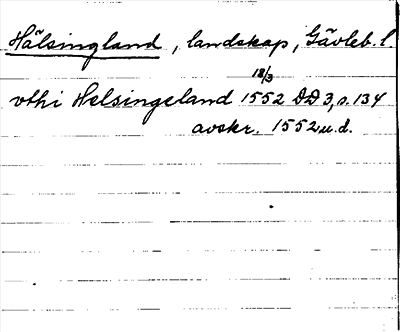 Hälsingland, landskap, Gävleb. l.
18/3
vthi Helsingeland 1552 DD 3, s. 134
avskr. 1552 u.d.